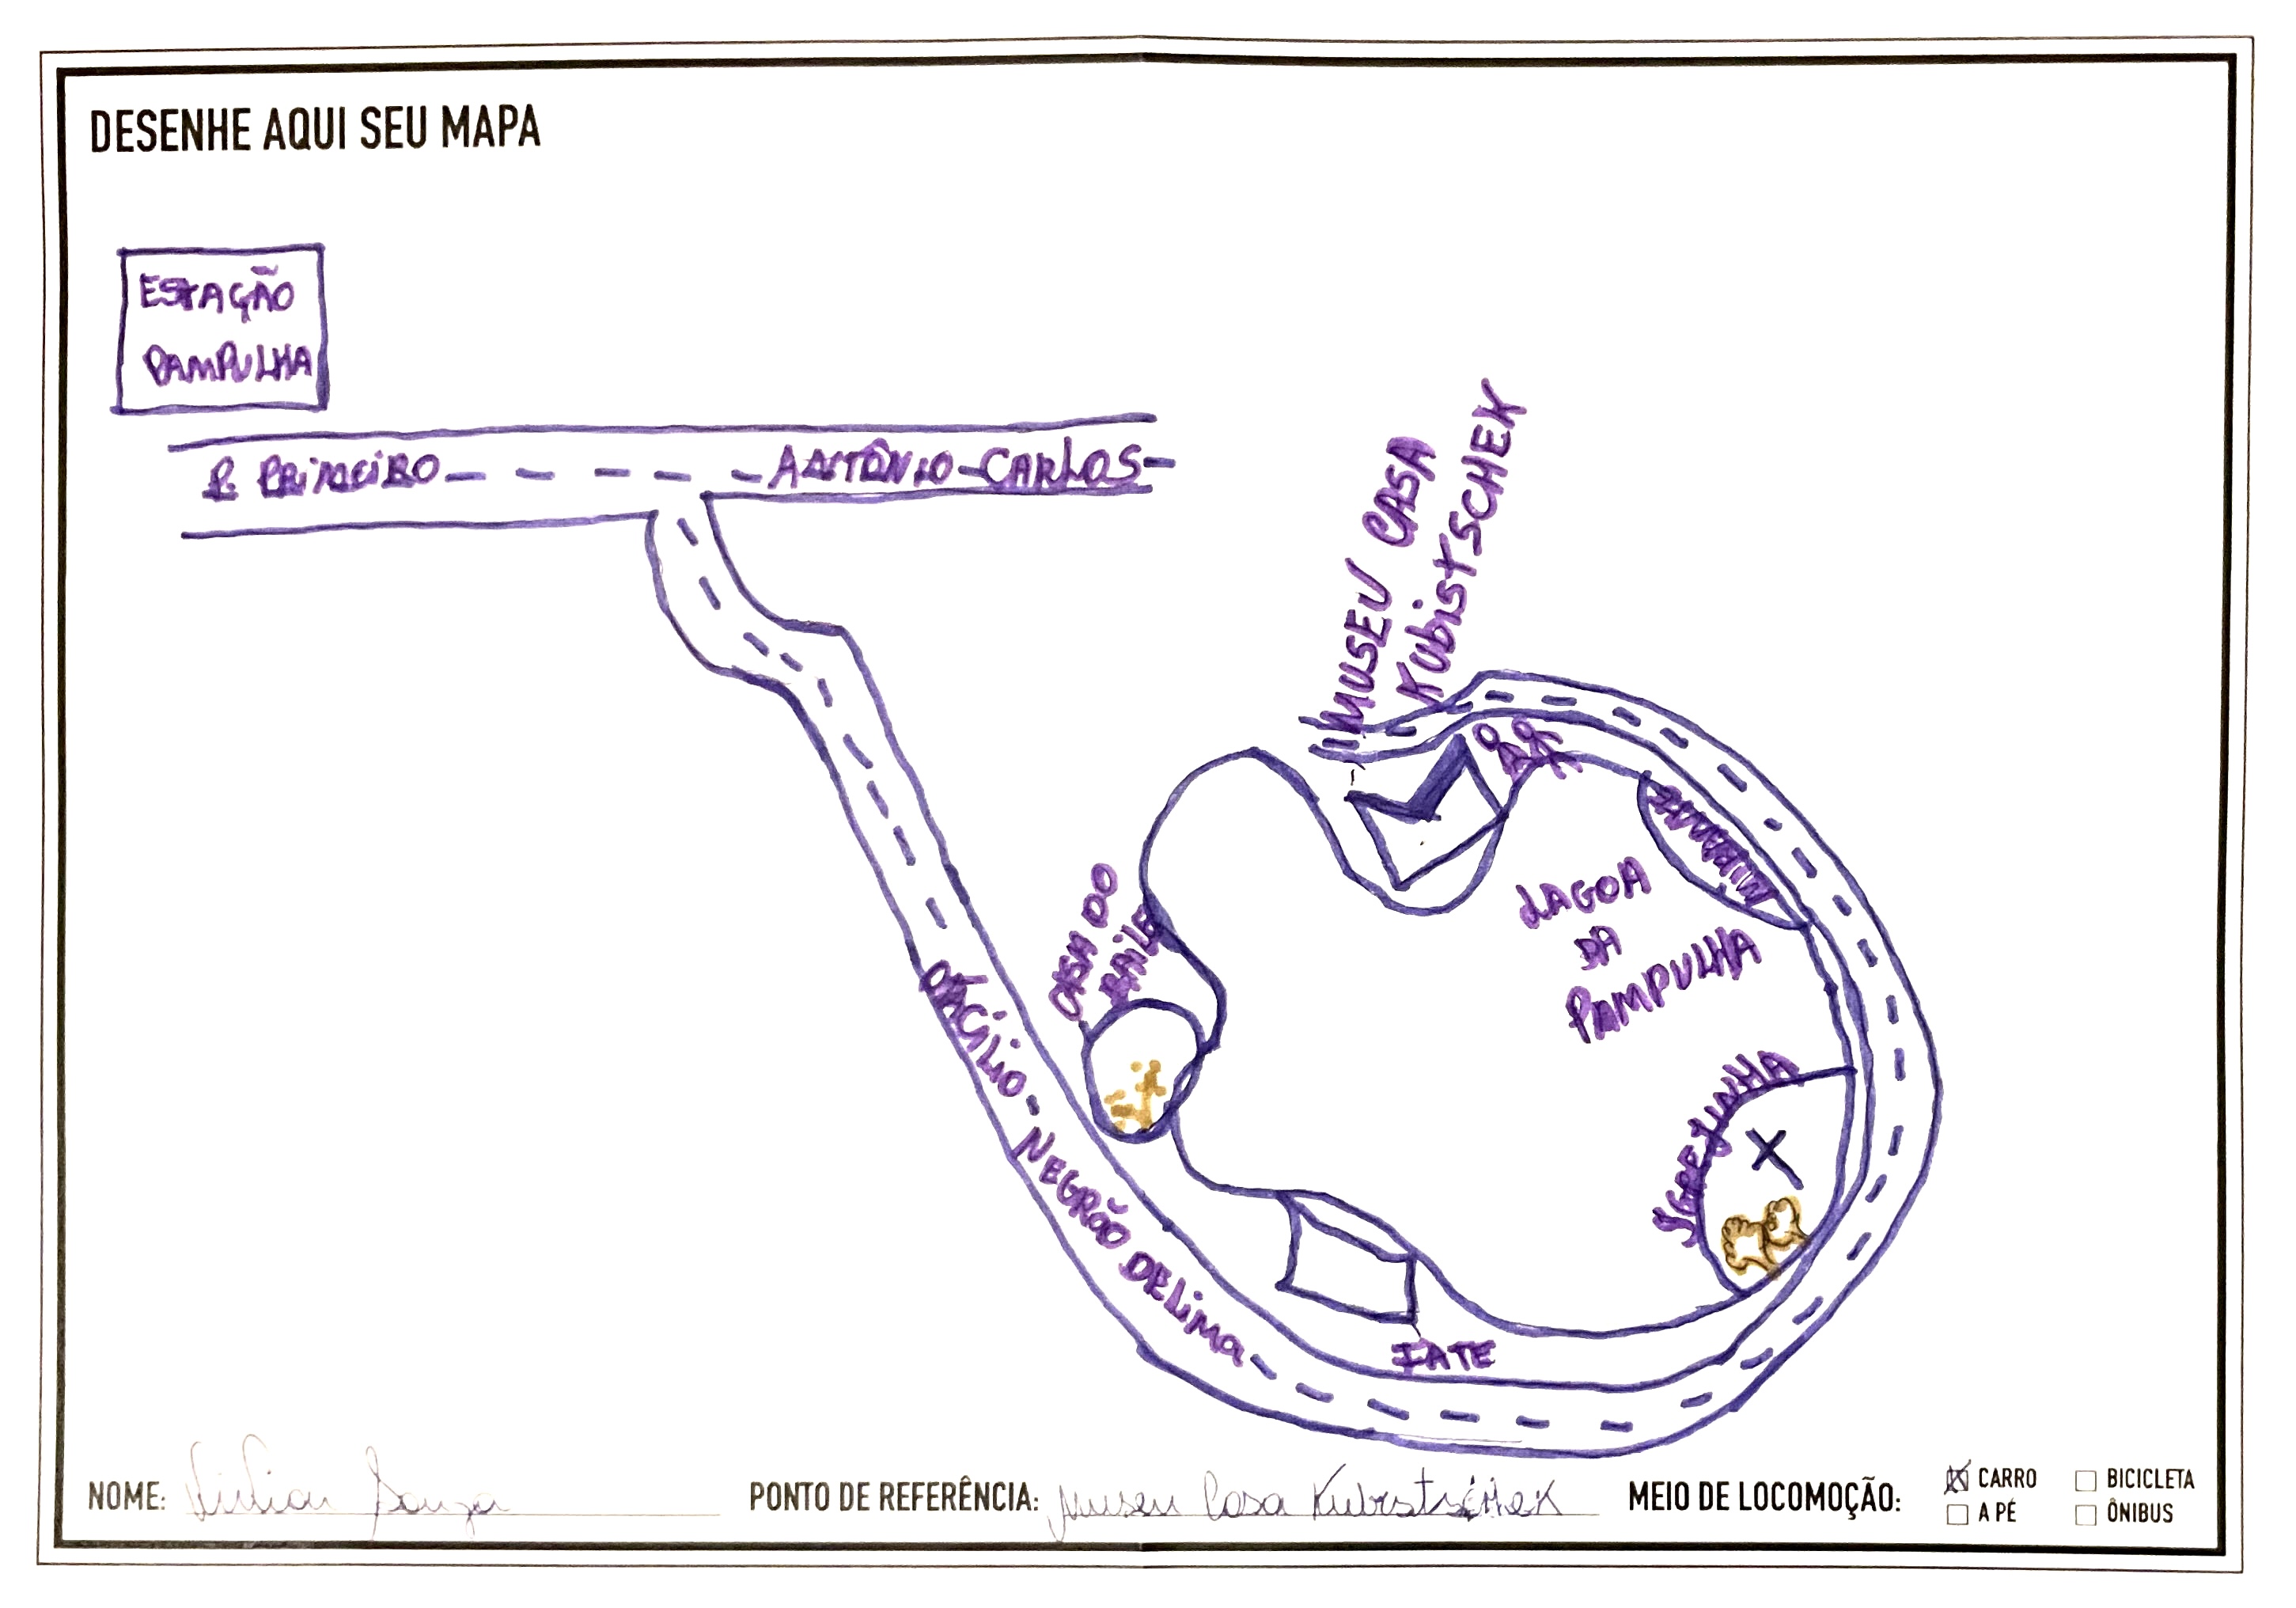 DESENHE AQUI SEU MAPA
ESTAÇÃO
PAMPULHA
P. PRIMEIRO
ANTÔNIO - CARLOS
MUSEU CASA
KUBISTSCHEK
CASA DO
BAILE
LAGOA
DA
PAMPULHA
MIRANTE
IGREJINHA
OTACÍLIO - NEGRÃO DE LIMA
IATE
NOME: Vivian Souza
PONTO DE REFERÊNCIA: Museu Casa Kubistschek
MEIO DE LOCOMOÇÃO:
CARRO
BICICLETA
A PÉ
ÔNIBUS